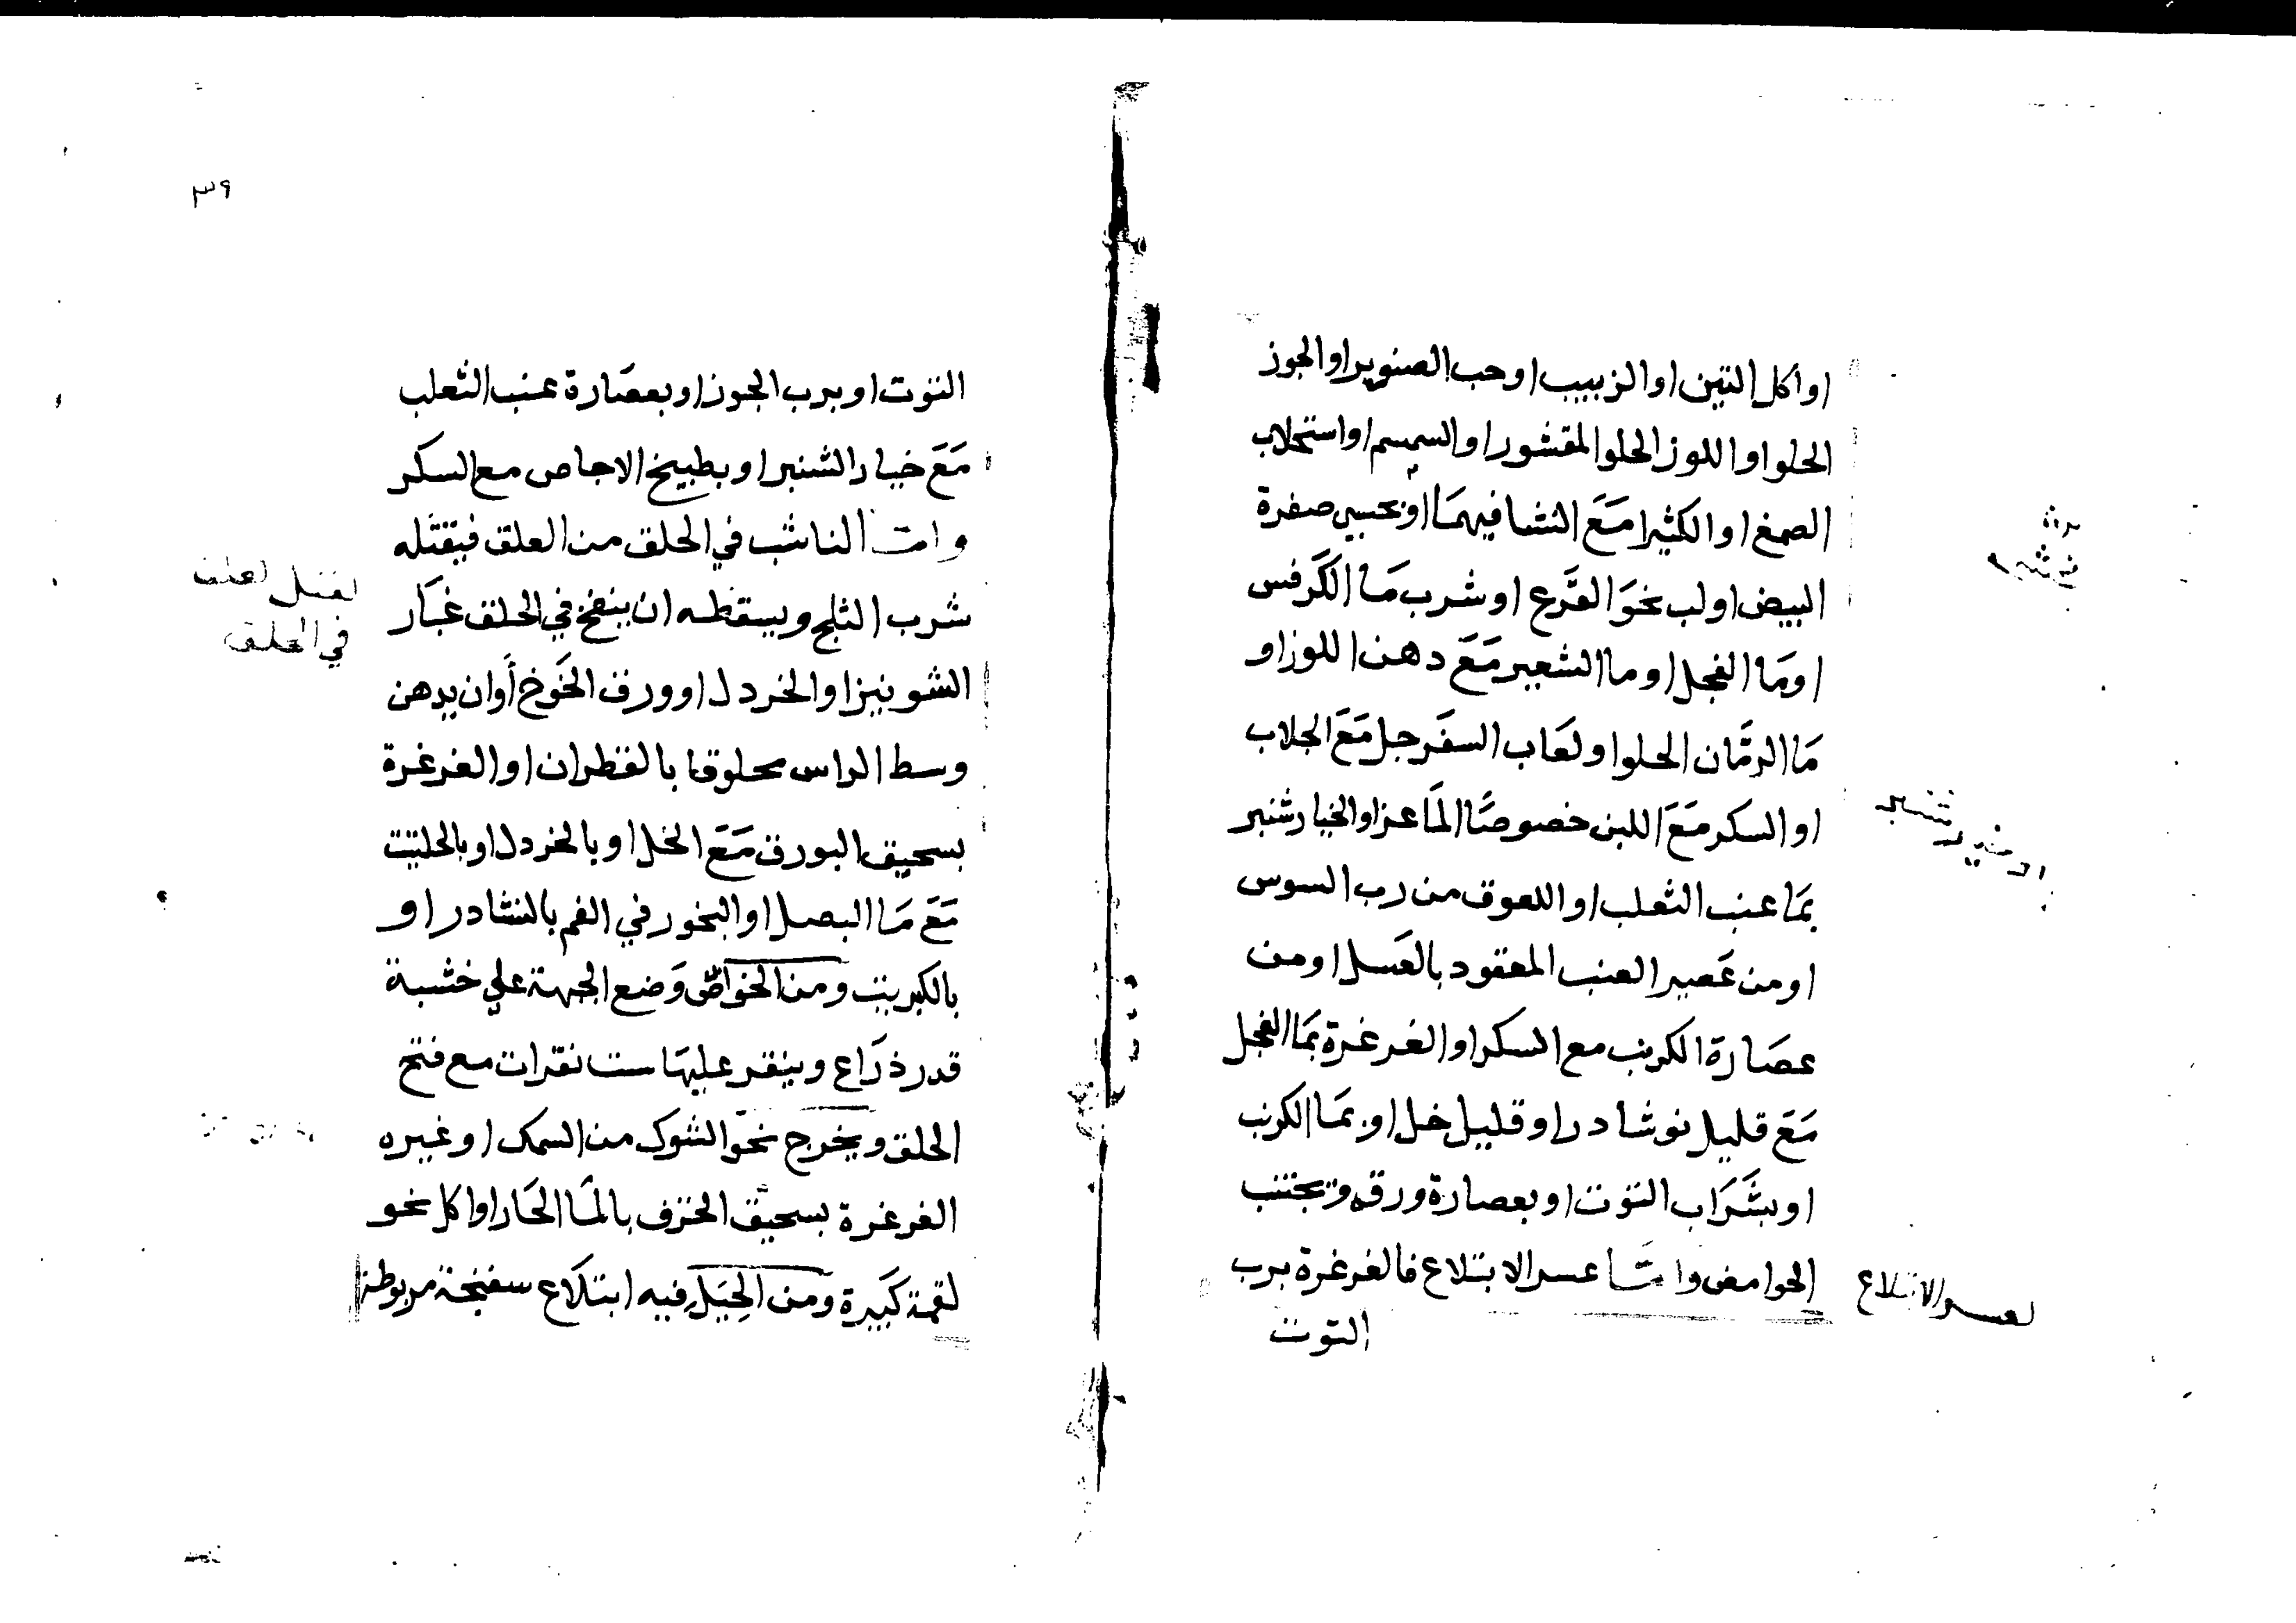 او اكل التين او الزبيب او حب الصنوبر او الجوز
الحلو او اللوز الحلو المقشور او السمسم او استحلاب
الصمغ او الكثيرا مَعَ النشا فيهمَا او تحسي صفرة
البيض او لب نحوَ القَرع او شرب مَا الكَرفس
او مَا الفجل او ما الشعير مَعَ دهن اللوز او
مَا الرمَّان الحلو او لعَاب السفَرجل مَعَ الجلاب
او السكر مَعَ اللبن خصوصًا المَاعز او الخيارشنبر
بمَا عنب الثعلب او اللعوق من رب السوس
او من عَصير العنب المعقود بالعَسل او من
عصَارة الكرنب مع السكر او الغرغرة بمَا الفجل
مَعَ قليل نوشادر او قليل خل او بمَا الكرنب
او بشَرَاب التوت او بعصارة ورقه ويجتنب
الحوامض وامَّا عسر الابتلاع فالغرغرة برب
التوت
لعسر الابتلاع
٣٩
التوت او برب الجوز او بعصَارة عنب الثعلب
مَعَ خيار الشنبر او بطبيخ الاجاص مع السكر
وامَّا الناشب في الحلق من العلق فيقتله
شرب الثلج ويسقطه ان ينفخ في الحلق غبَار
الشونيز او الخردل او ورق الخَوخ أَوان يدهن
وسط الراس محلوقا بالقطران او الغرغرة
بسحيق البورق مَعَ الخل او بالخردل او بالحلتيت
مَعَ مَا البصل او البخور في الفم بالنشادر او
بالكبريت ومن الخواصّ وَضع الجبهة علي خشبة
قدر ذرَاع وينقر عليهَا ست نقرات مع فتح
الحلق ويخرج نحوَ الشوك من السمك او غيره
الغرغرة بسحيق الخزف بالمَا الحَار او اكل نحو
لقمة كَبيرة ومن الحِيَل فيه ابتلَاع سفنجة مربوطة
لقتل العلق
في الحلق